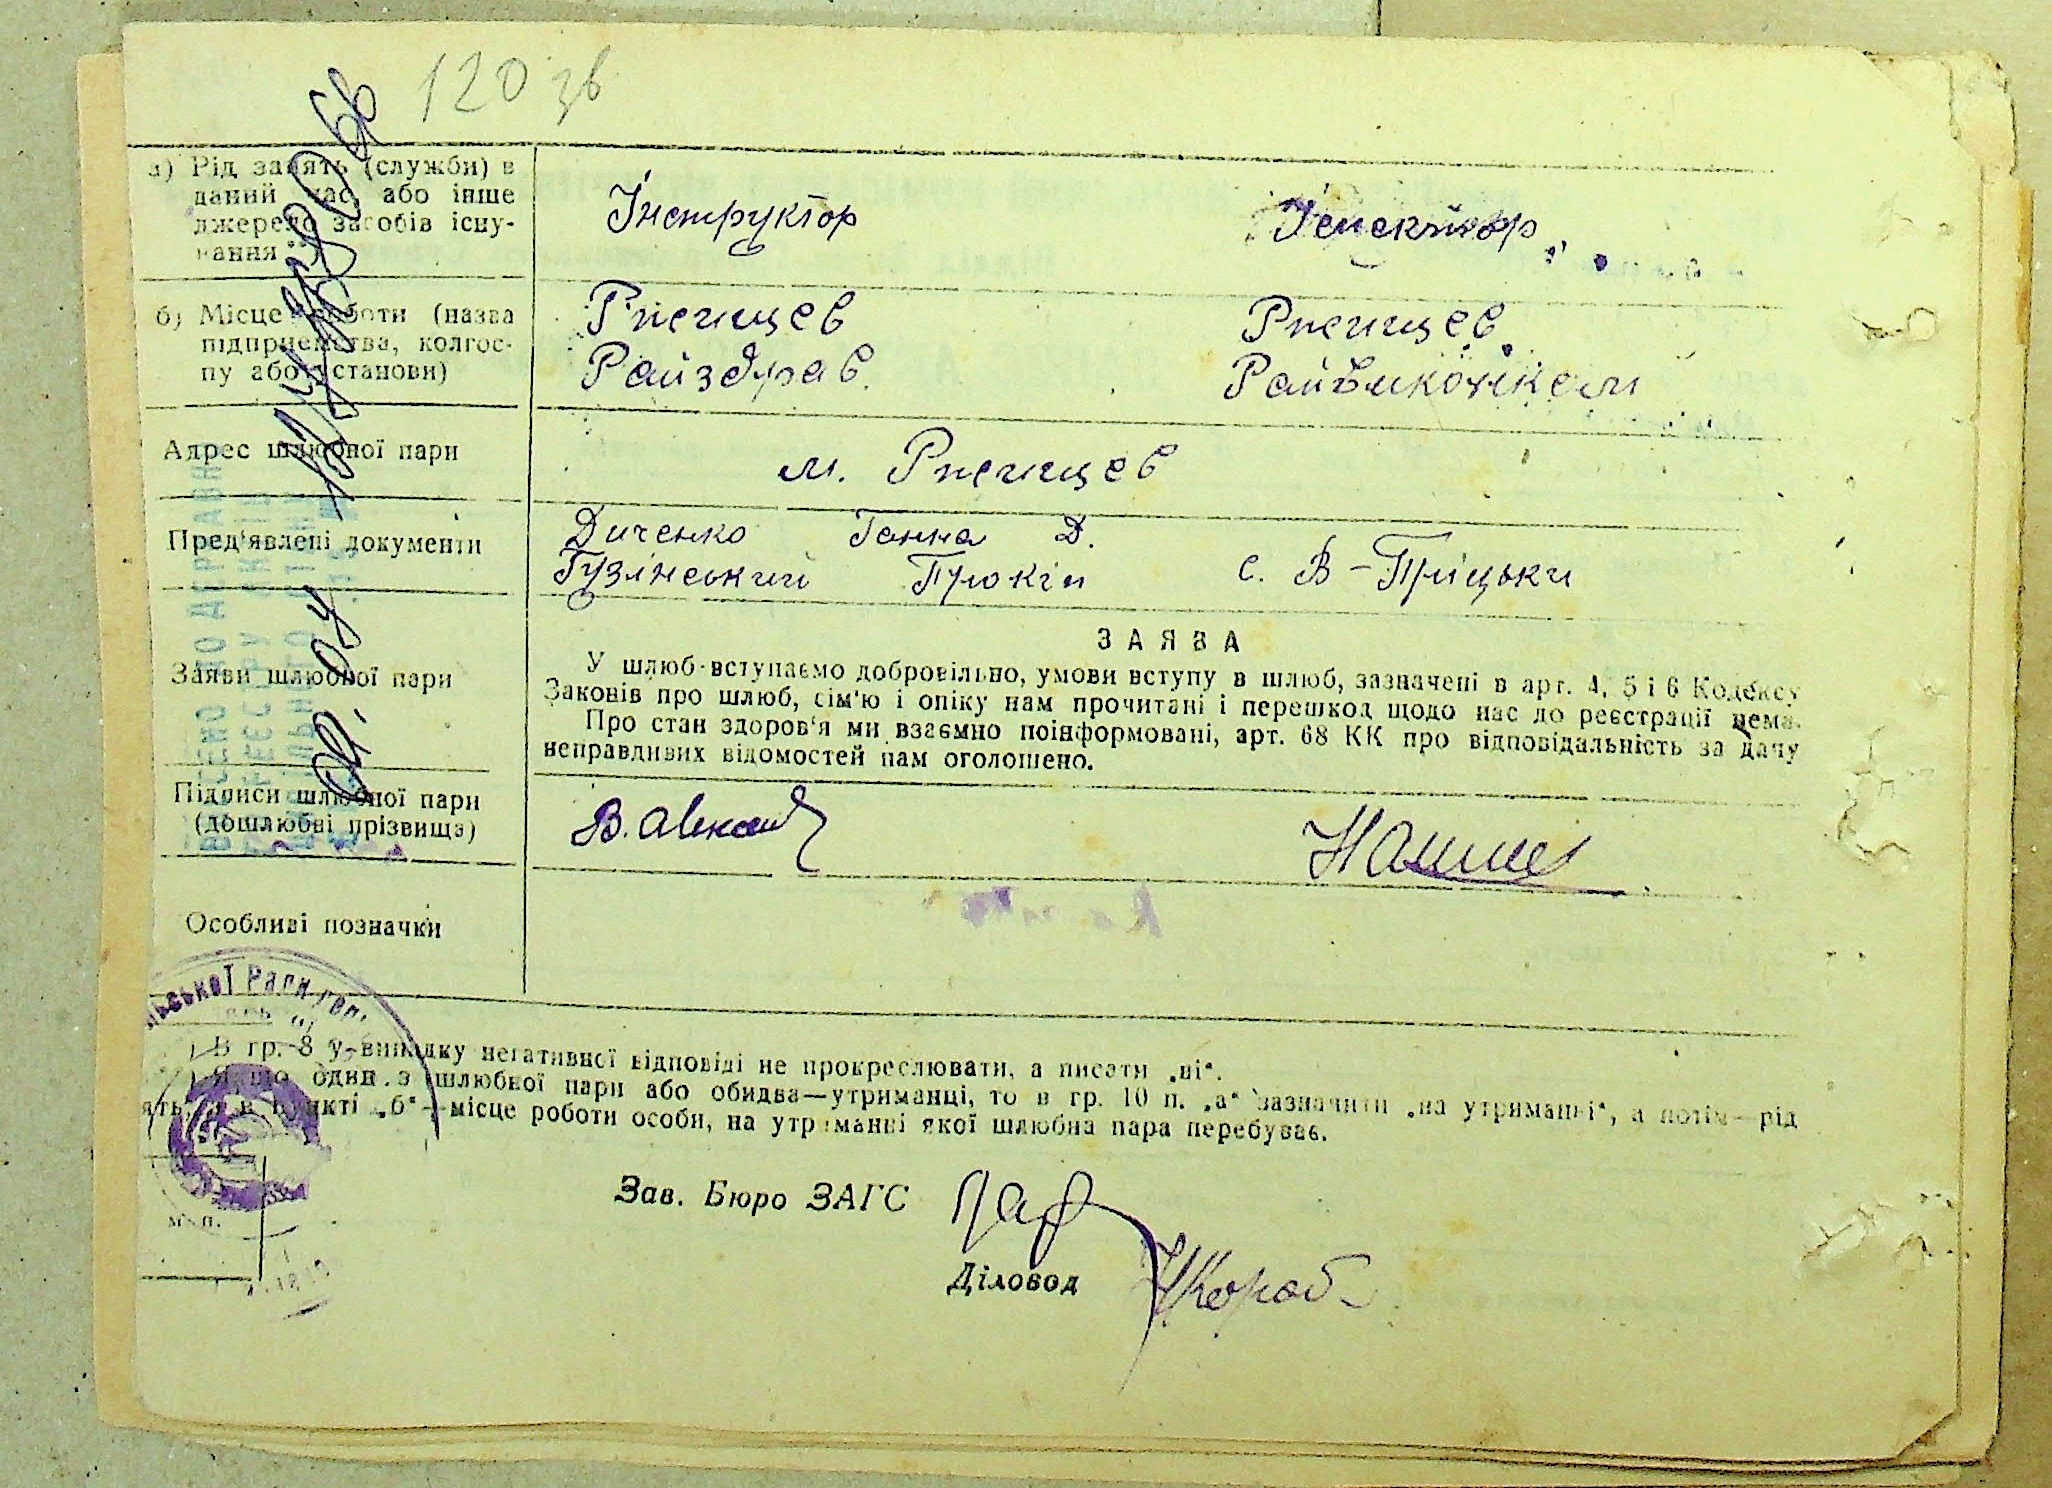 120 зв
а) Рід занять (служби) в
даний час або інше
джерело засобів існу-
вання **)
Інструктор
Інспектор
б) Місце роботи (назва
підприємства, колгос-
пу або установи)
Ржищев
Райздрав.
Ржищев
Райвиконком
Адрес шлюбної пари
м. Ржищев
Пред'явлені документи
Диченко Ганна Д.
Гузінський Прокіп с. В-Пріцьки
Заяви шлюбної пари
ЗАЯВА
У шлюб вступаємо добровільно, умови вступу в шлюб, зазначені в арт. 4, 5 і 6 Кодексу
Законів про шлюб, сім'ю і опіку нам прочитані і перешкод щодо нас до реєстрації нема.
Про стан здоров'я ми взаємно поінформовані, арт. 68 КК про відповідальність за дачу
неправдивих відомостей нам оголошено.
Підписи шлюбної пари
(дошлюбні прізвища)
Особливі позначки
ської Ради
) В гр. 8 у випадку негативної відповіді не прокреслювати, а писати „ні“.
) Якщо один з шлюбної пари або обидва—утриманці, то в гр. 10 п. „а“ зазначити „на утриманні“, а потім—рід
ять, а в пункті „б“—місце роботи особи, на утриманні якої шлюбна пара перебуває.
Зав. Бюро ЗАГС
м. п.
Діловод